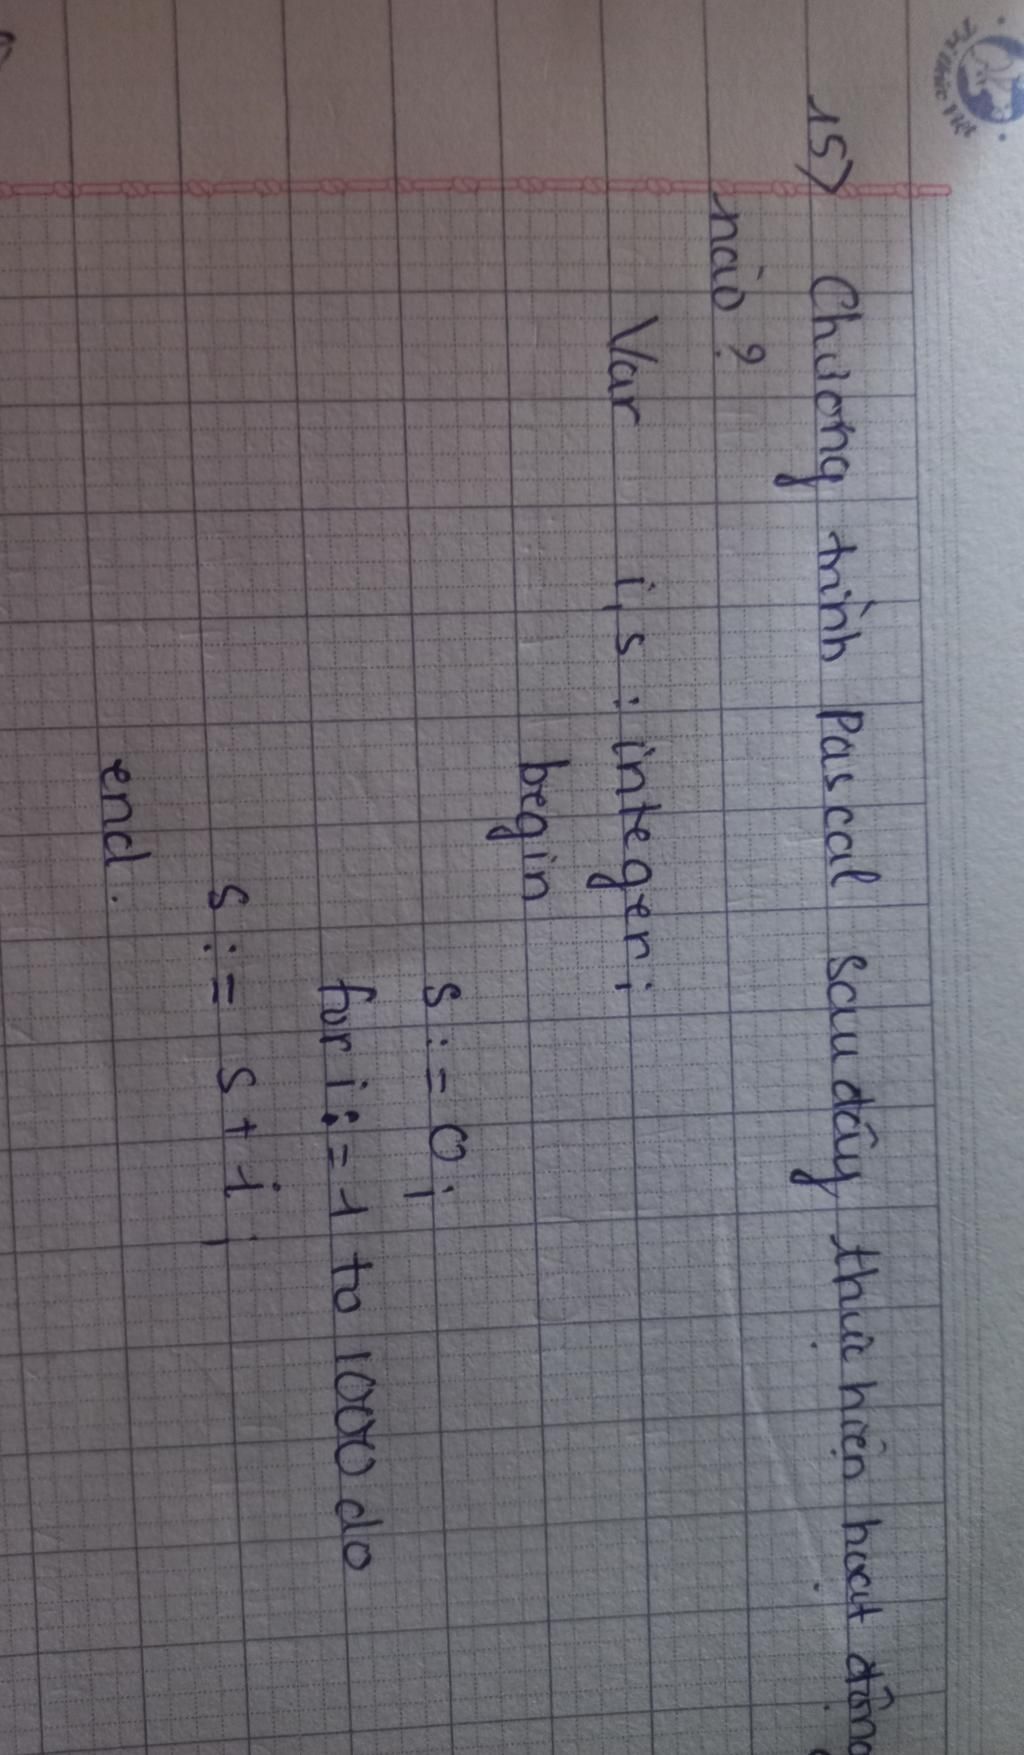 Tri thức Việt
15> Chương trình Pascal sau đây thực hiện hoạt động
nào ?
Var i,s : integer ;
begin
s := 0 ;
for i := 1 to 1000 do
s := s + i ;
end .